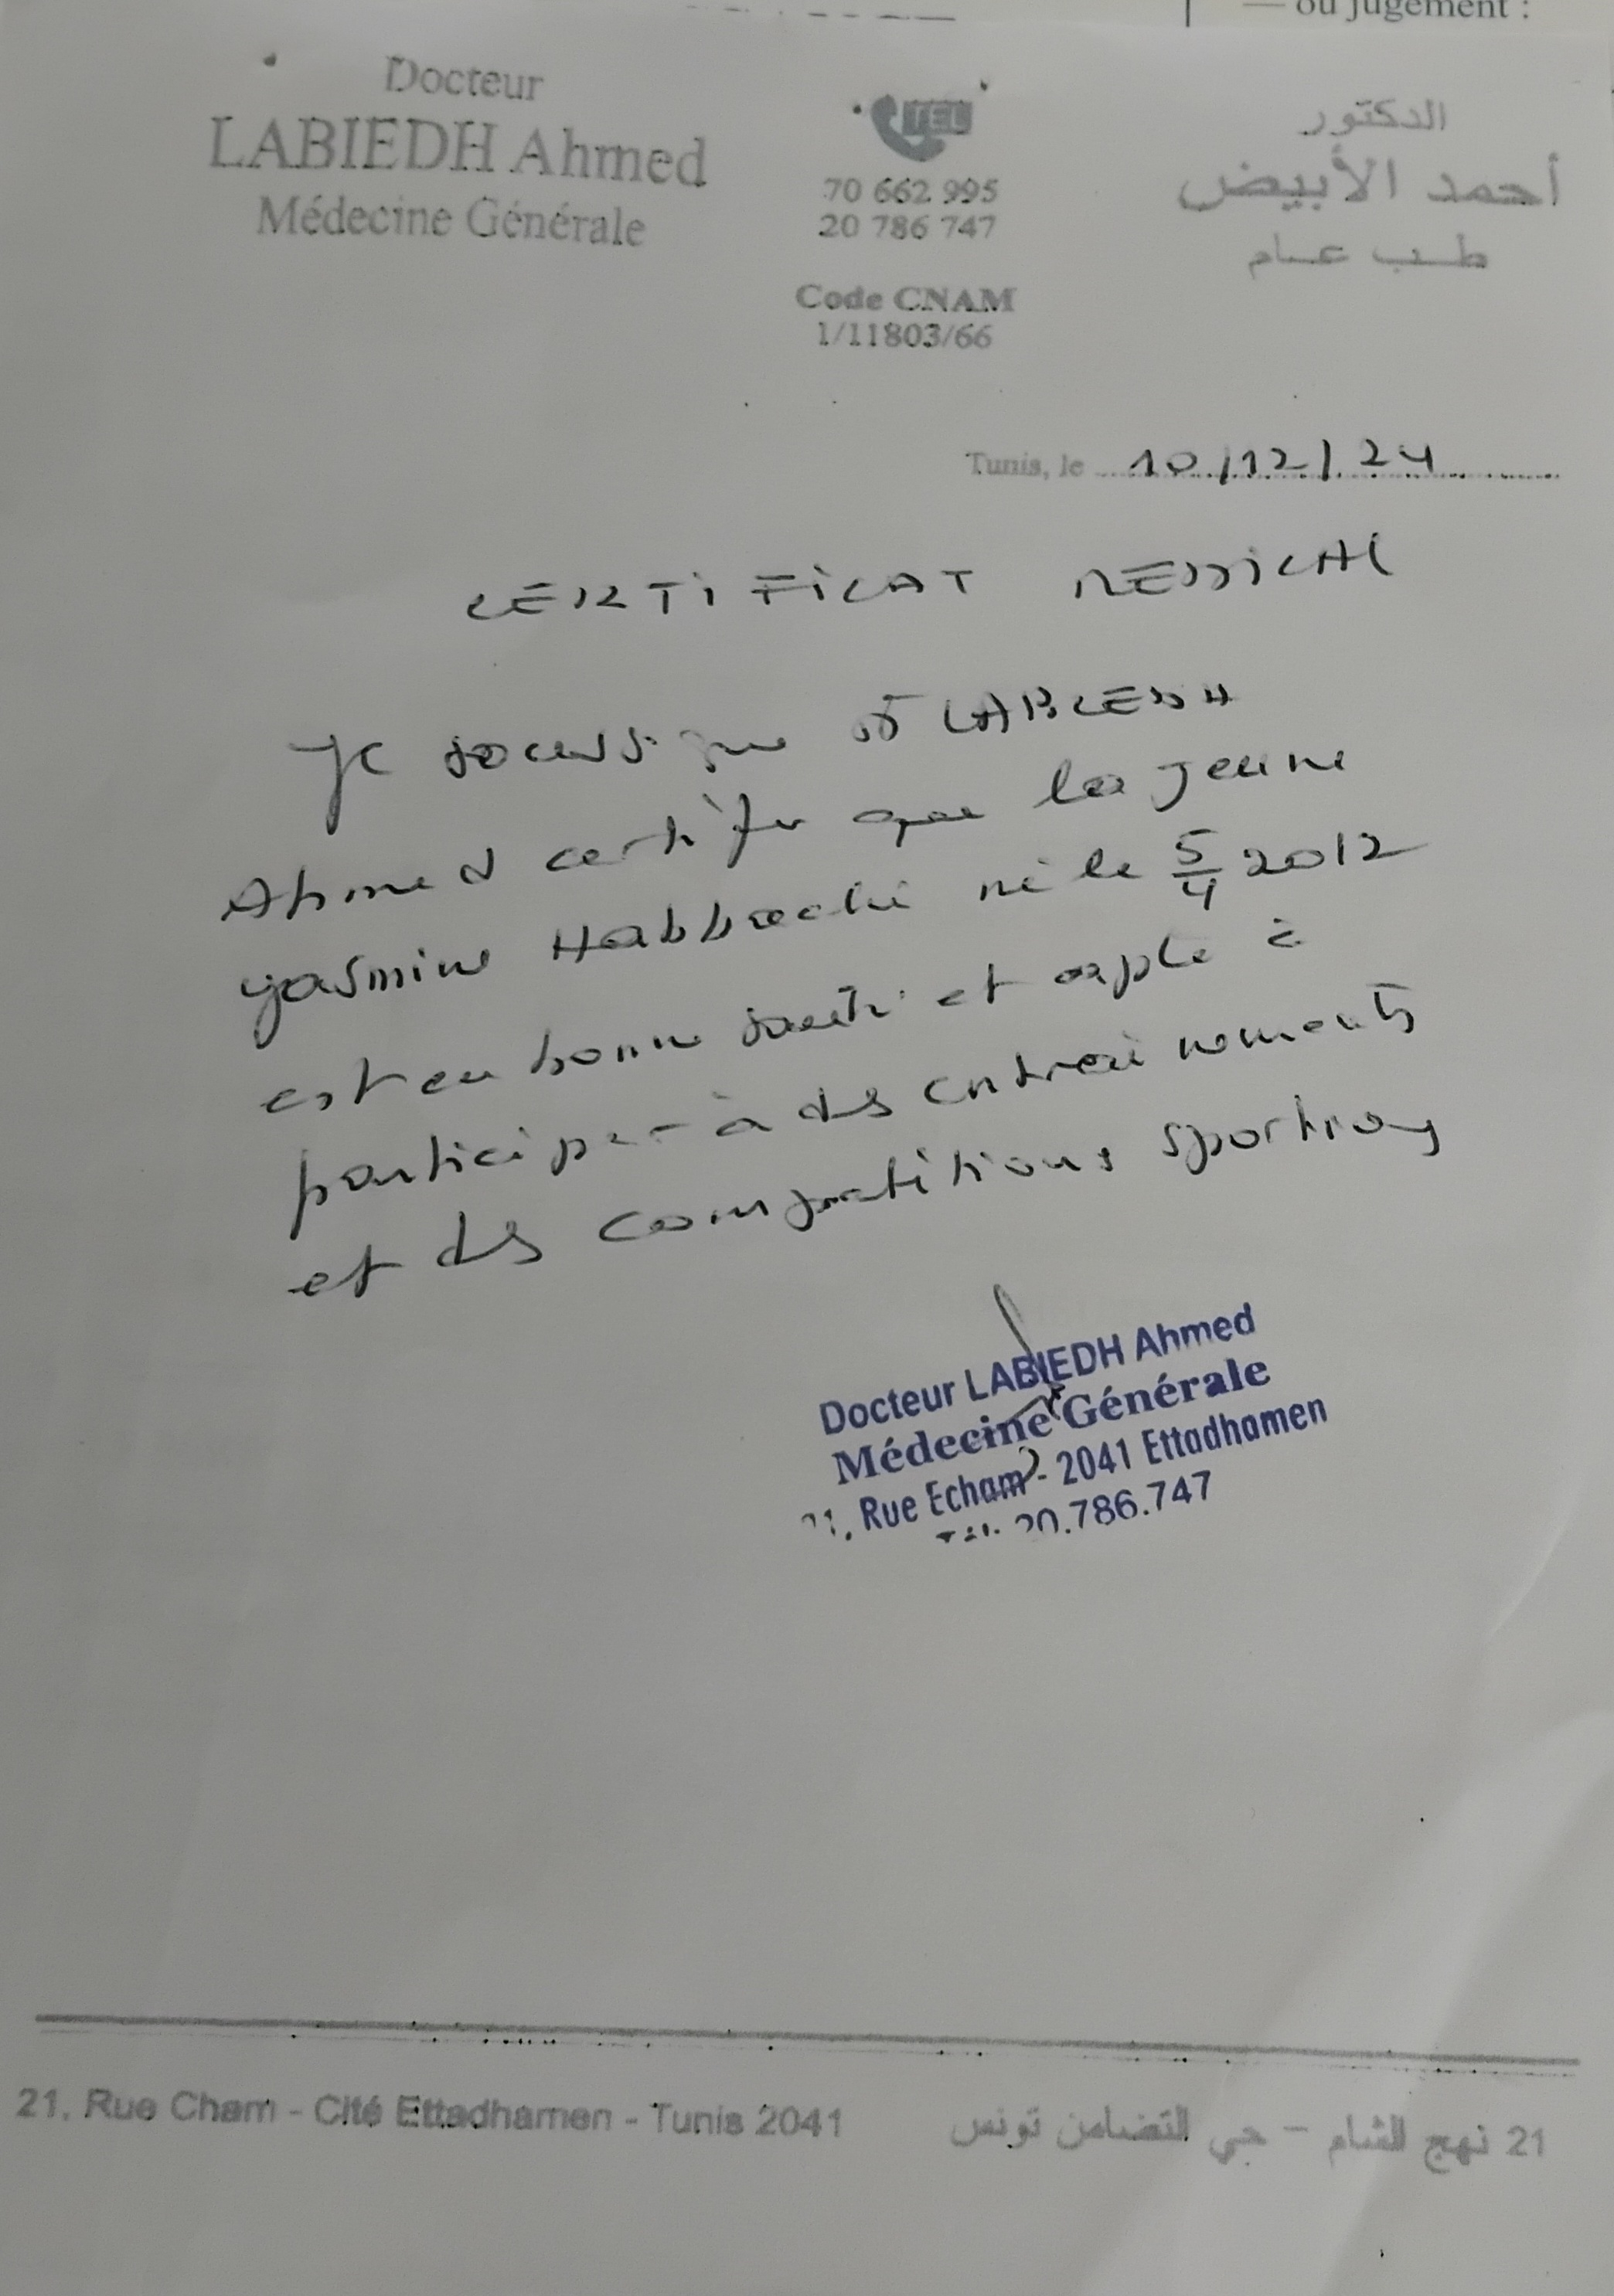 — ou jugement :
Docteur
LABIEDH Ahmed
Médecine Générale
TEL
70 662 995
20 786 747
Code CNAM
1/11803/66
الدكتور
أحمد الأبيض
طب عام
Tunis, le 10/12/24
CERTIFICAT MEDICAL
Je soussigné Dr LABIEDH
Ahmed certifie que la jeune
Yasmine né le 5/4 2012
est en bonne santé et apte à
participer à des entrainements
et des compétitions sportives
Docteur LABIEDH Ahmed
Médecine Générale
21, Rue Echam - 2041 Ettadhamen
Tél: 20.786.747
21, Rue Cham - Cité Ettadhamen - Tunis 2041
21 نهج الشام – حي التضامن تونس